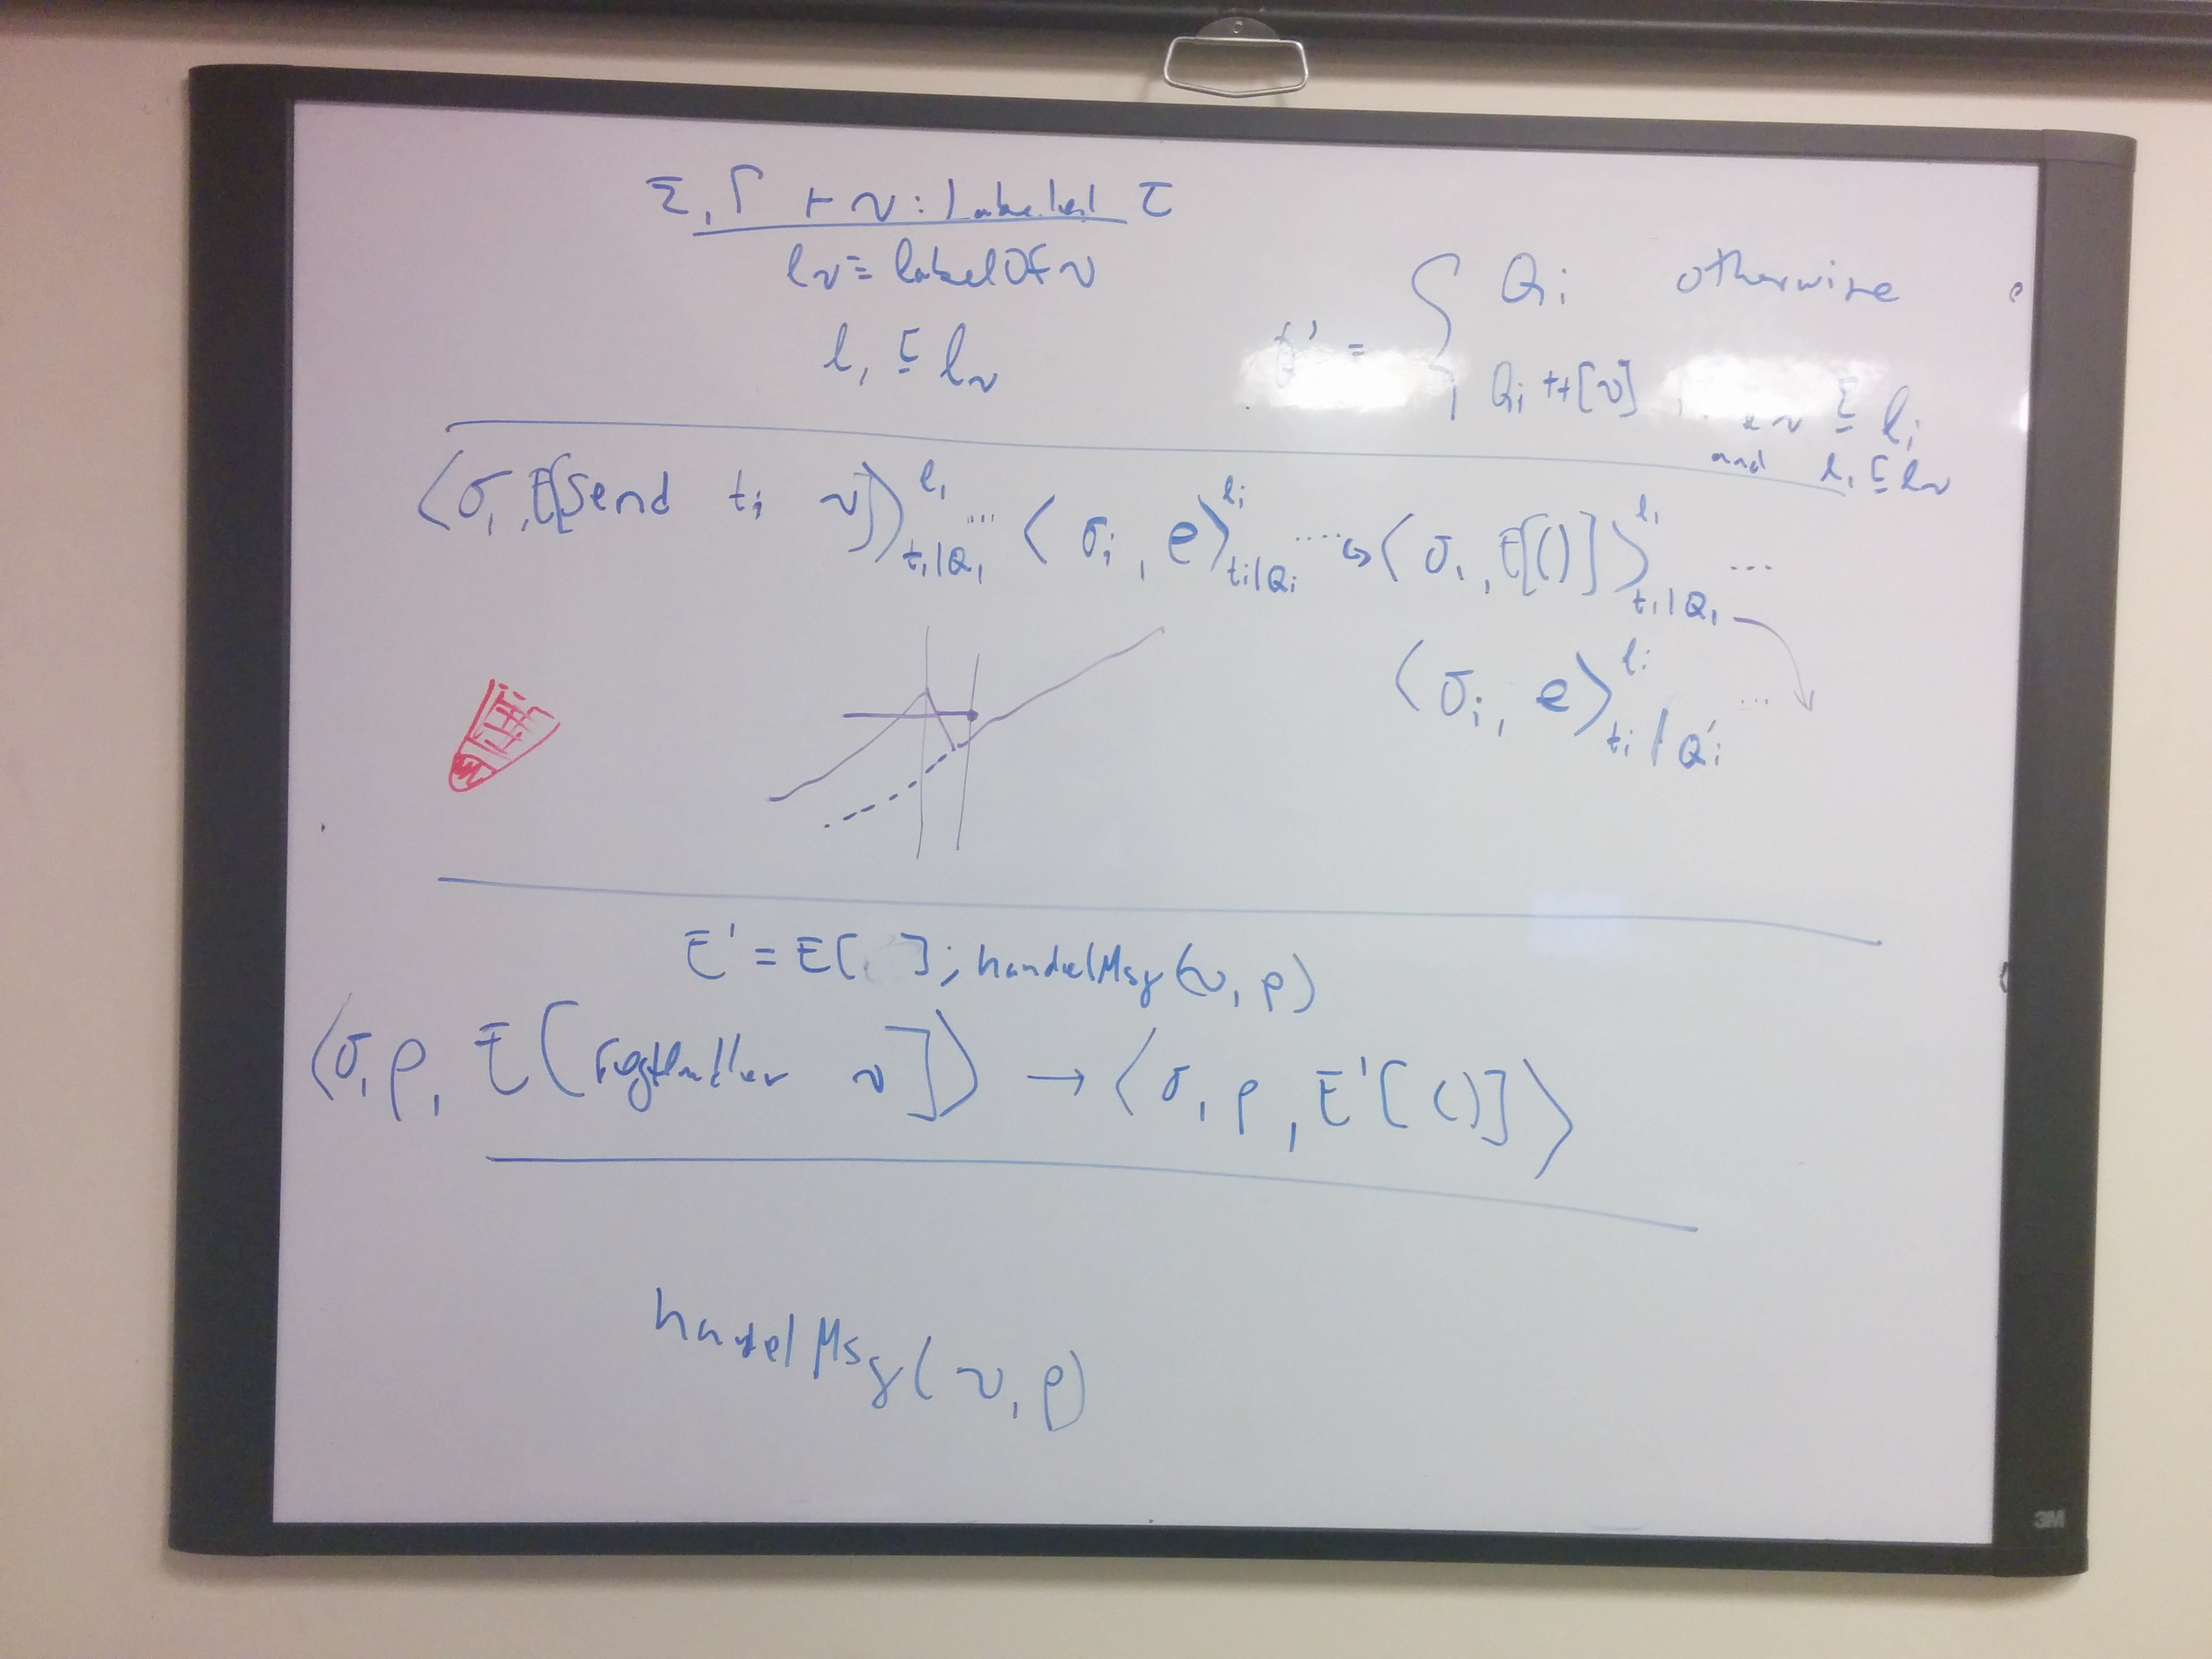 Σ, Γ ⊢ v : Labeled τ
lv = labelOf v
l₁ ⊑ lv
Q' = { Qi otherwise
Qi ++ [v] lv ⊑ li
and l₁ ⊑ lv
⟨σ₁, E[Send ti v]⟩^l₁_t₁|Q₁ ... ⟨σi, e⟩^li_ti|Qi .... ↪ ⟨σ₁, E[()]⟩^l₁_t₁|Q₁ ...
⟨σi, e⟩^li_ti|Q'i ...
E' = E[ ]; handelMsg(v, ρ)
⟨σ, ρ, E[regHandler v]⟩ → ⟨σ, ρ, E'[()]⟩
handelMsg(v, ρ)
3M